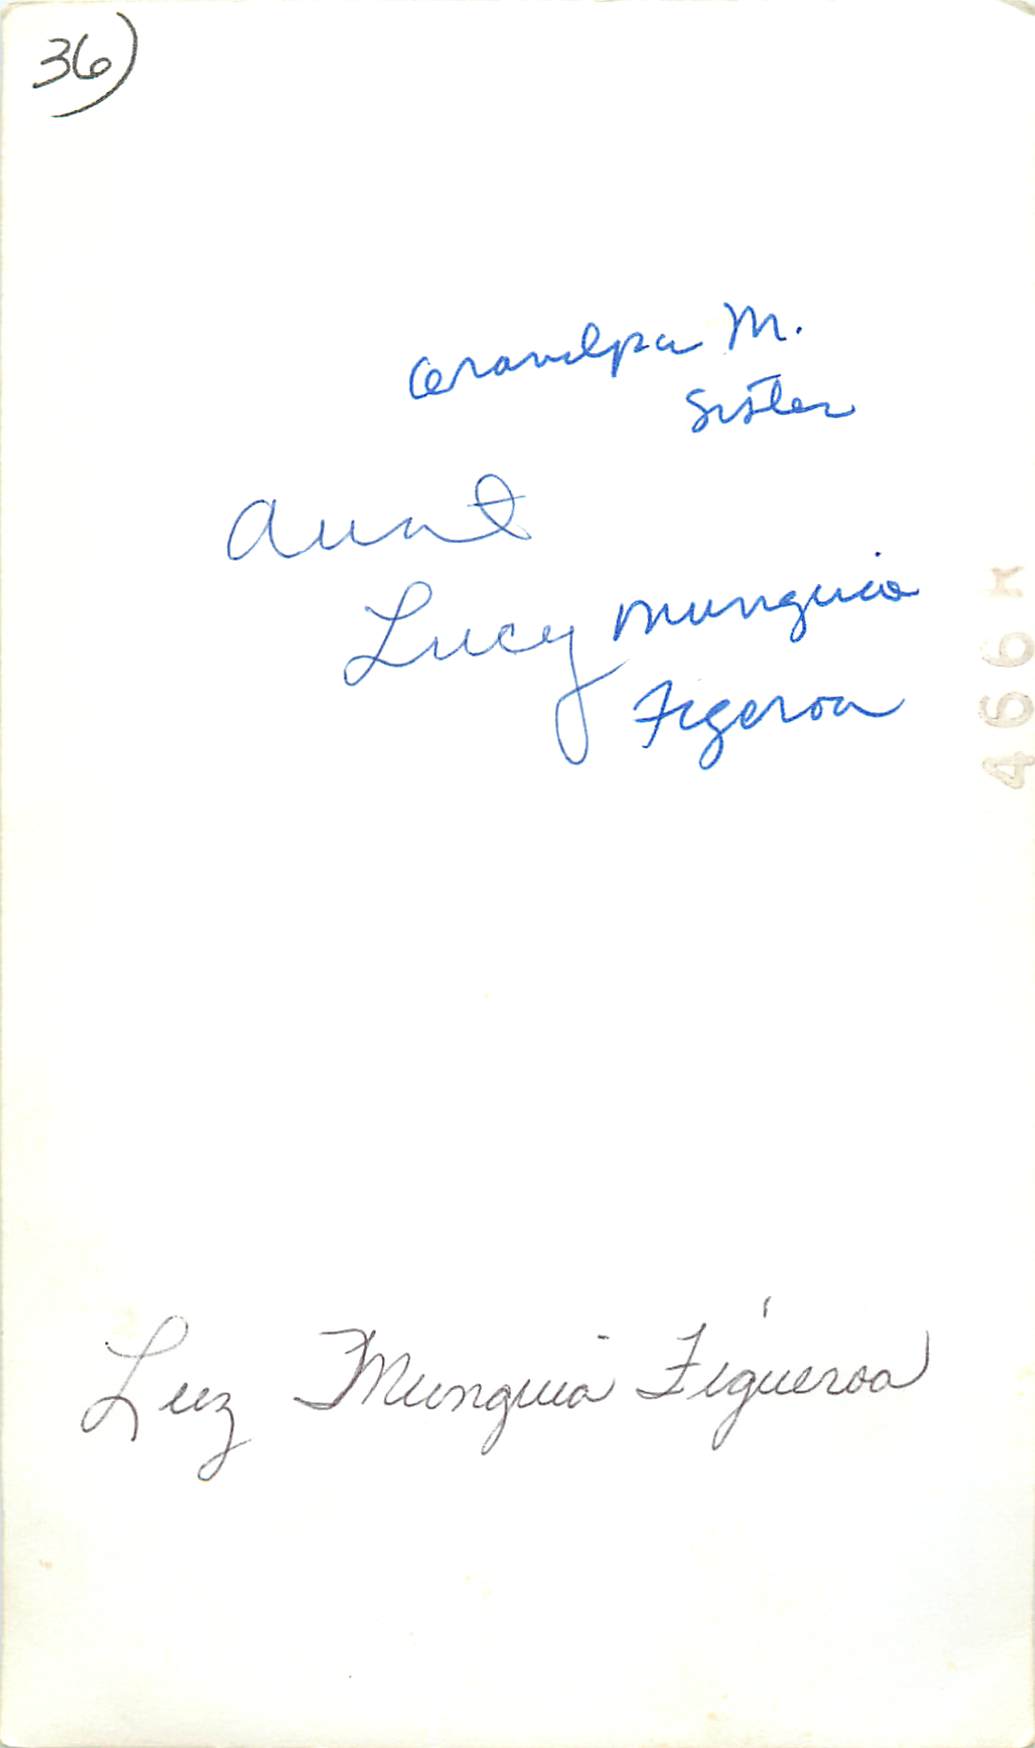 36)
Grandpa M.
Sister
Aunt
Lucy Munguia
Figeroa
466 M
Luz Munguia Figueroa